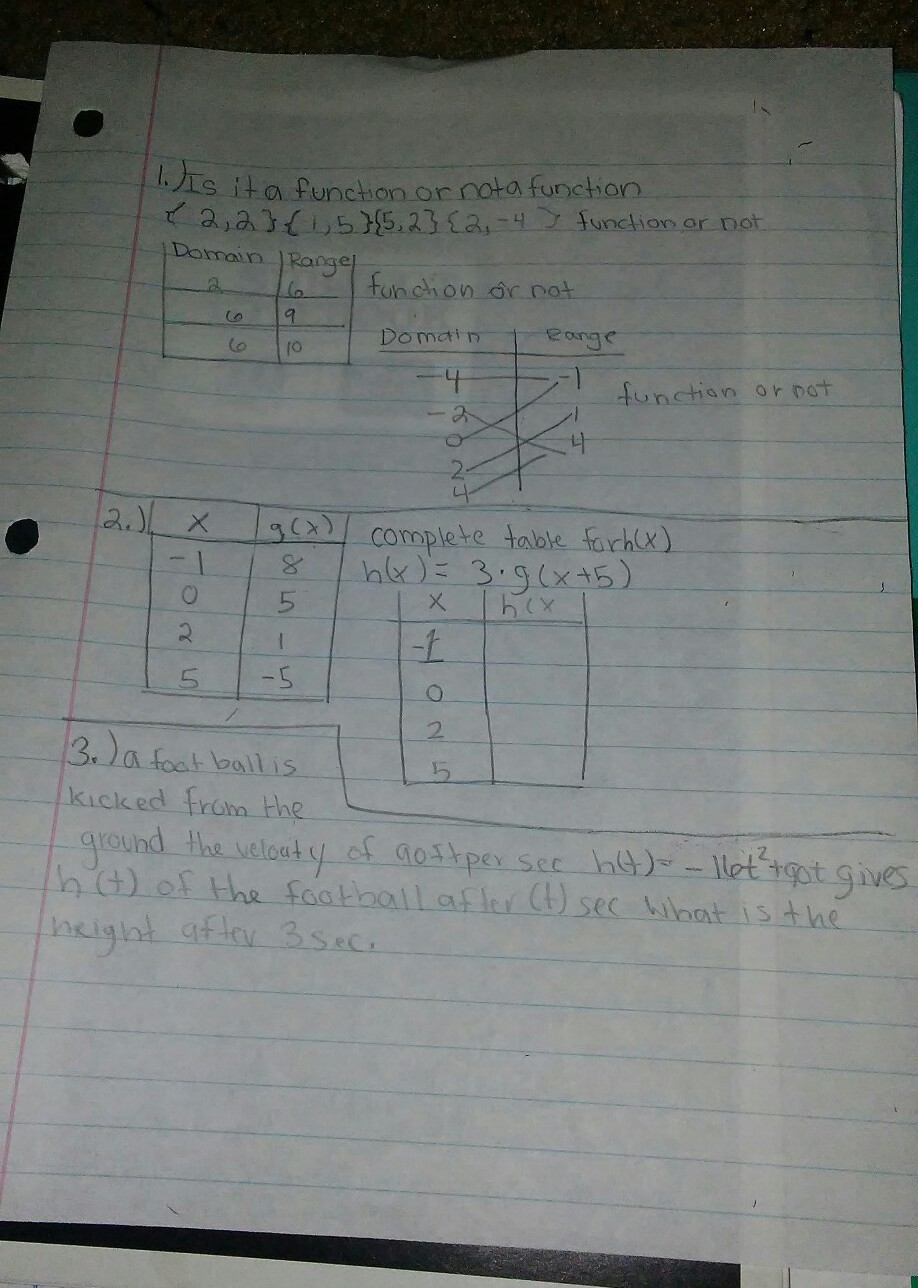 1.) Is it a function or not a function
{ 2,2}{1,5}{5,2}{2,-4 } function or not
Domain Range
2 6 function or not
6 9
6 10
Domain Range
-4 -1 function or not
-2 1
0 4
2
4
2.) x g(x) complete table for h(x)
-1 8 h(x) = 3·g(x+5)
0 5 x h(x
2 1 -1
5 -5 0
2
5
3.) a football is
kicked from the
ground the velocity of 90ft per sec h(t)= -16t²+90t gives
h(t) of the football after (t) sec What is the
height after 3 sec.